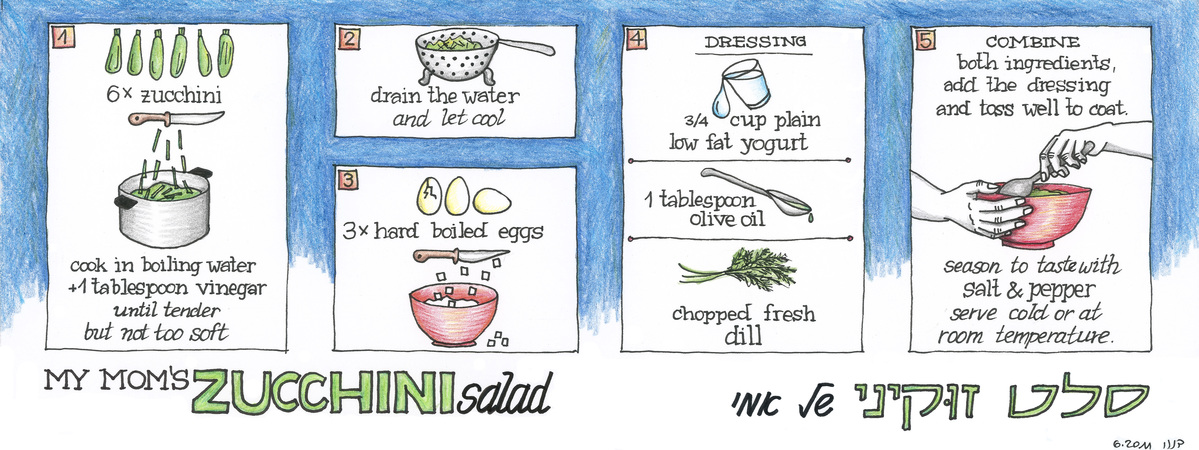 1
6x zucchini
cook in boiling water
+1 tablespoon vinegar
until tender
but not too soft
2
drain the water
and let cool
3
3x hard boiled eggs
4
DRESSING
3/4 cup plain
low fat yogurt
1 tablespoon
olive oil
chopped fresh
dill
5
COMBINE
both ingredients,
add the dressing
and toss well to coat.
season to taste with
salt & pepper
serve cold or at
room temperature.
MY MOM'S ZUCCHINI salad
סלט זוקיני של אמי
6.2011